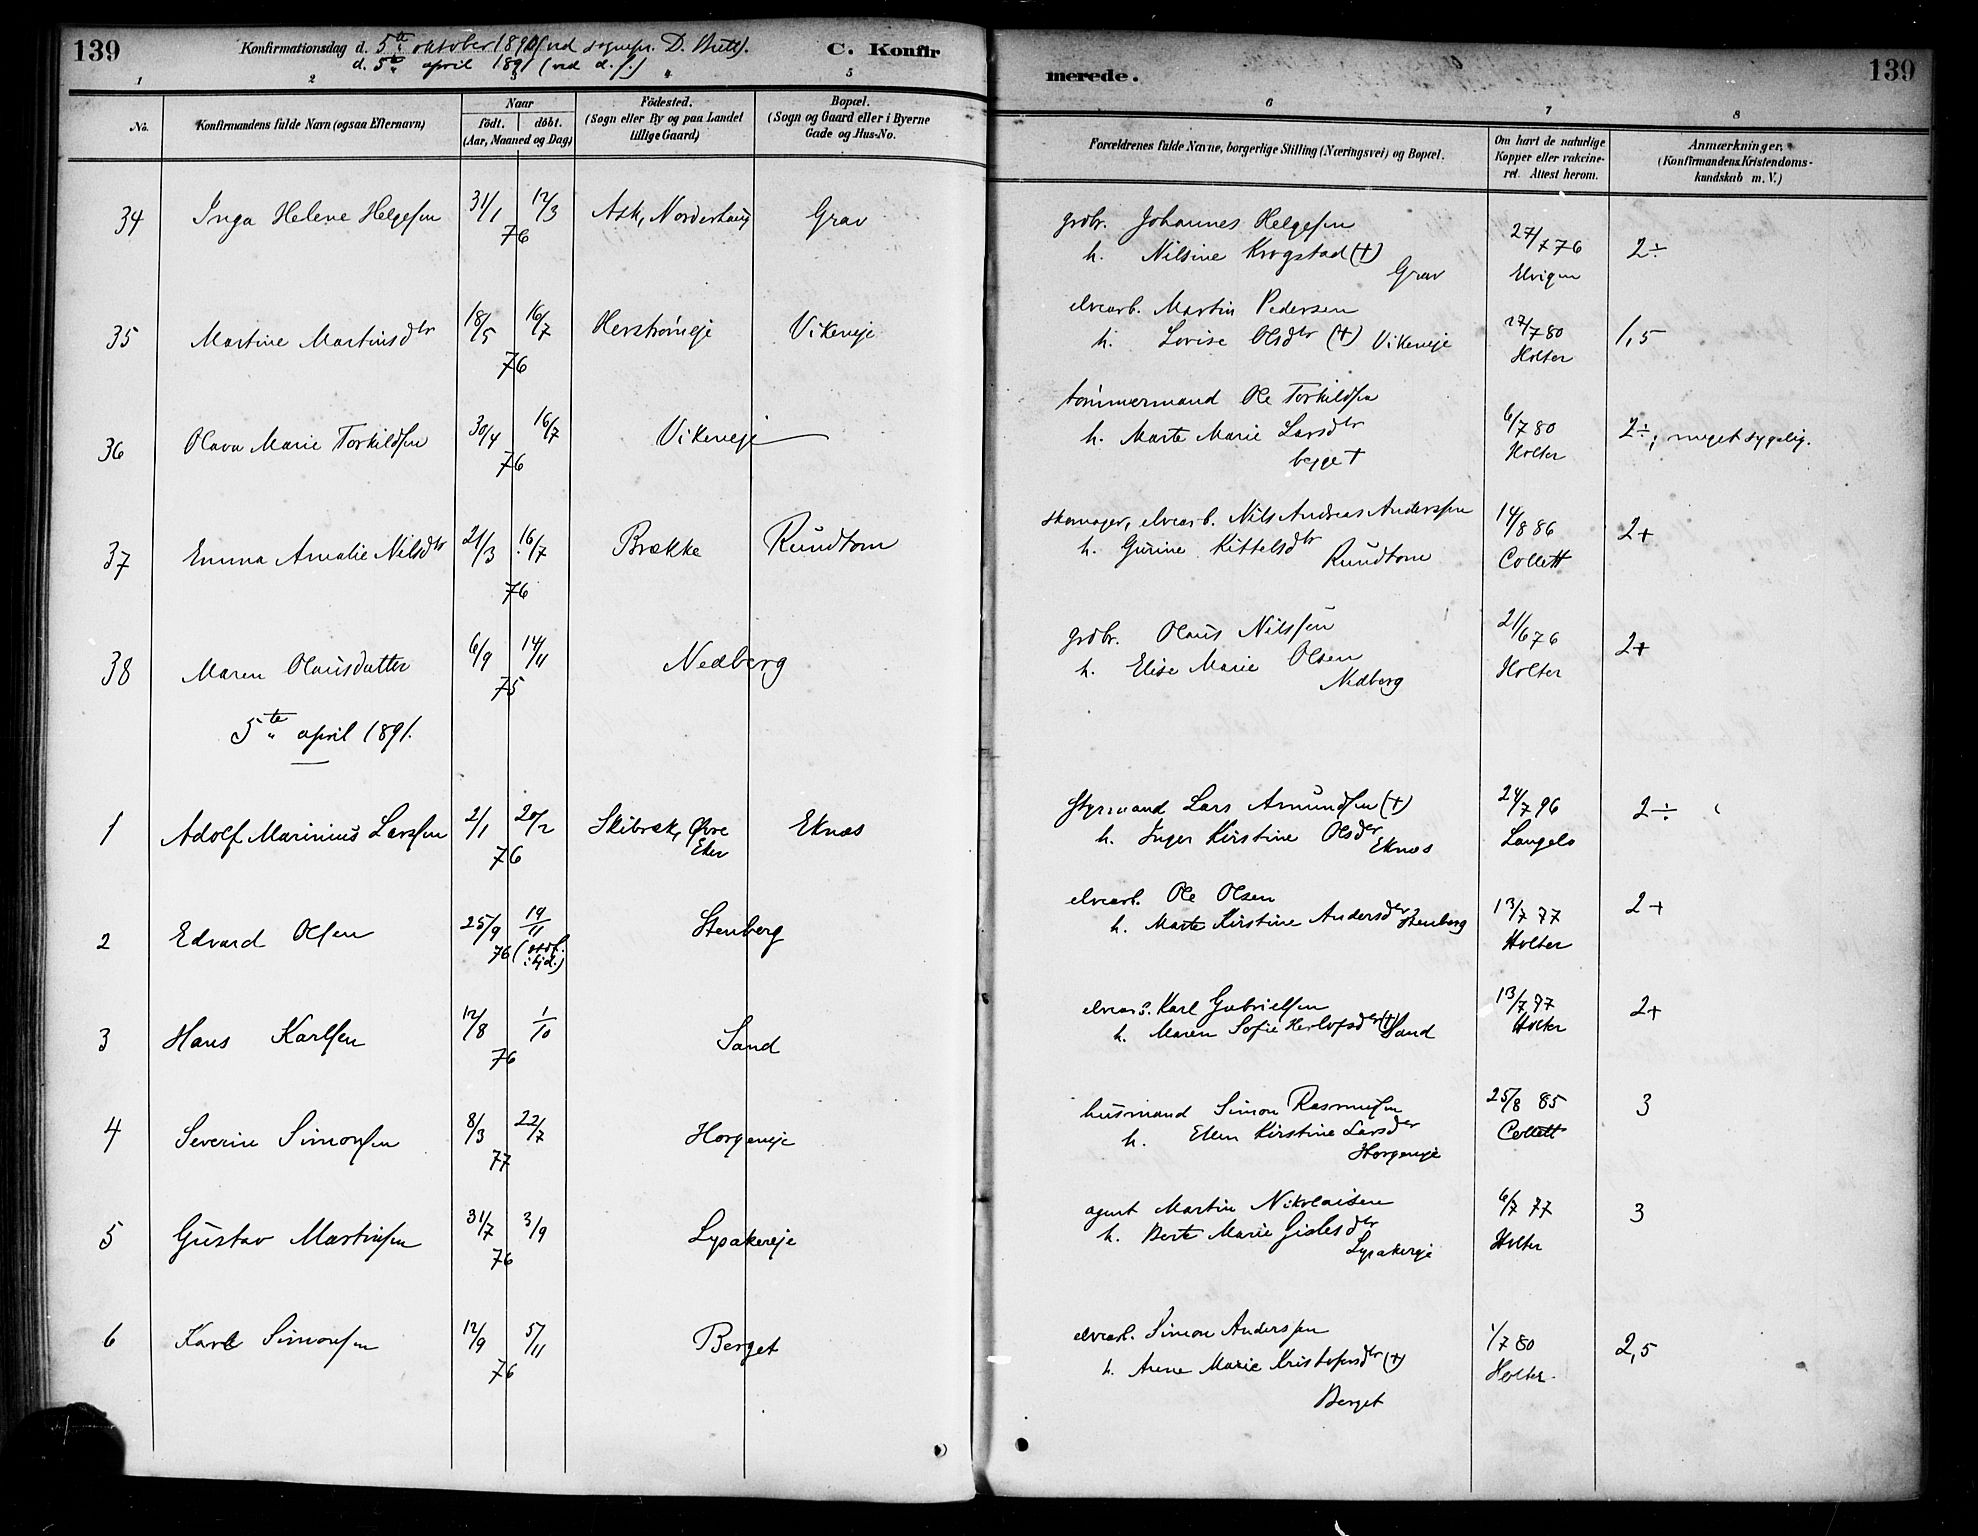 139
Konfirmationsdag d. 5te oktober 1890 (ved sognepr. D. Butt).
d. 5te april 1891 (ved d. s.)
C. Konfir
merede.
139
1 2 3 4 5 6 7 8
No.
Konfirmandens fulde Navn (ogsaa Efternavn)
Naar
født. døbt.
(Aar, Maaned og Dag)
Födested.
(Sogn eller By og paa Landet
tillige Gaard)
Bopæl.
(Sogn og Gaard eller i Byerne
Gade og Hus-No.
Forældrenes fulde Navne, borgerlige Stilling (Næringsvei) og Bopæl.
Om havt de naturlige
Kopper eller vakcine-
ret. Attest herom.
Anmærkninger,
(Konfirmandens Kristendoms-
kundskab m. V.)
34 Inga Helene Helgesen 31/1 12/3 76 Ask, Norderhaug Grav
grdbr. Johannes Helgesen
h. Nilsine Krogstad (+)
Grav
27/7 76
Elvigen
2÷
35 Martine Martinsdtr 18/5 16/7 76 Herstrømeje Vikeneje
elvearb. Martin Pedersen
h. Lovise Olsdtr (+) Vikeneje
27/7 80
Holter
1,5
36 Olava Marie Torkildsen 30/4 16/7 76 Vikeneje
tømmermand Ole Torkildsen
h. Marte Marie Larsdtr
begge +
6/7 80
Holter
2÷, meget sygelig.
37 Emma Amalie Nilsdtr 21/3 16/7 76 Brække Rundtom
skomager, elvearb. Nils Andreas Anderssen
h. Gurine Kittelsdtr
Rundtom
14/8 86
Collett
2+
38 Maren Olausdatter 6/9 14/11 75 Nedberg
grdbr. Olaus Nilssen
h. Elise Marie Olsen
Nedberg
21/6 76
Holter
2+
5te april 1891.
1 Adolf Marinius Larssen 2/1 20/2 76 Skibræk, Øvre
Eker
Eknæs
Styrmand Lars Amundsen (+)
h. Inger Kirstine Olsdtr
Eknæs
24/7 96
Langelo
2÷
2 Edvard Olsen 25/9 19/11 76 Stenberg
elvearb. Ole Olsen
h. Marte Kirstine Andersdtr Stenberg
13/7 77
Holter
2+
3 Hans Karlsen 12/8 1/10 76 Sand
elvearb. Karl Gabrielsen
h. Maren Sofie Herlofsdtr (+) Sand
13/7 77
Holter
2+
4 Severin Simonsen 8/3 22/7 77 Horgeneje
husmand Simon Rasmussen
h. Elen Kirstine Larsdtr
Horgeneje
25/8 85
Collett
3
5 Gustav Martinsen 31/7 3/9 76 Lysakereje
agent Martin Nikolaisen
h. Berte Marie Gislesdtr
Lysakereje
6/7 77
Holter
3
6 Karl Simonsen 12/9 5/11 76 Berget
elvearb. Simon Anderssen
h. Anne Marie Kristofersdtr (+)
Berget
1/7 80
Holter.
2,5